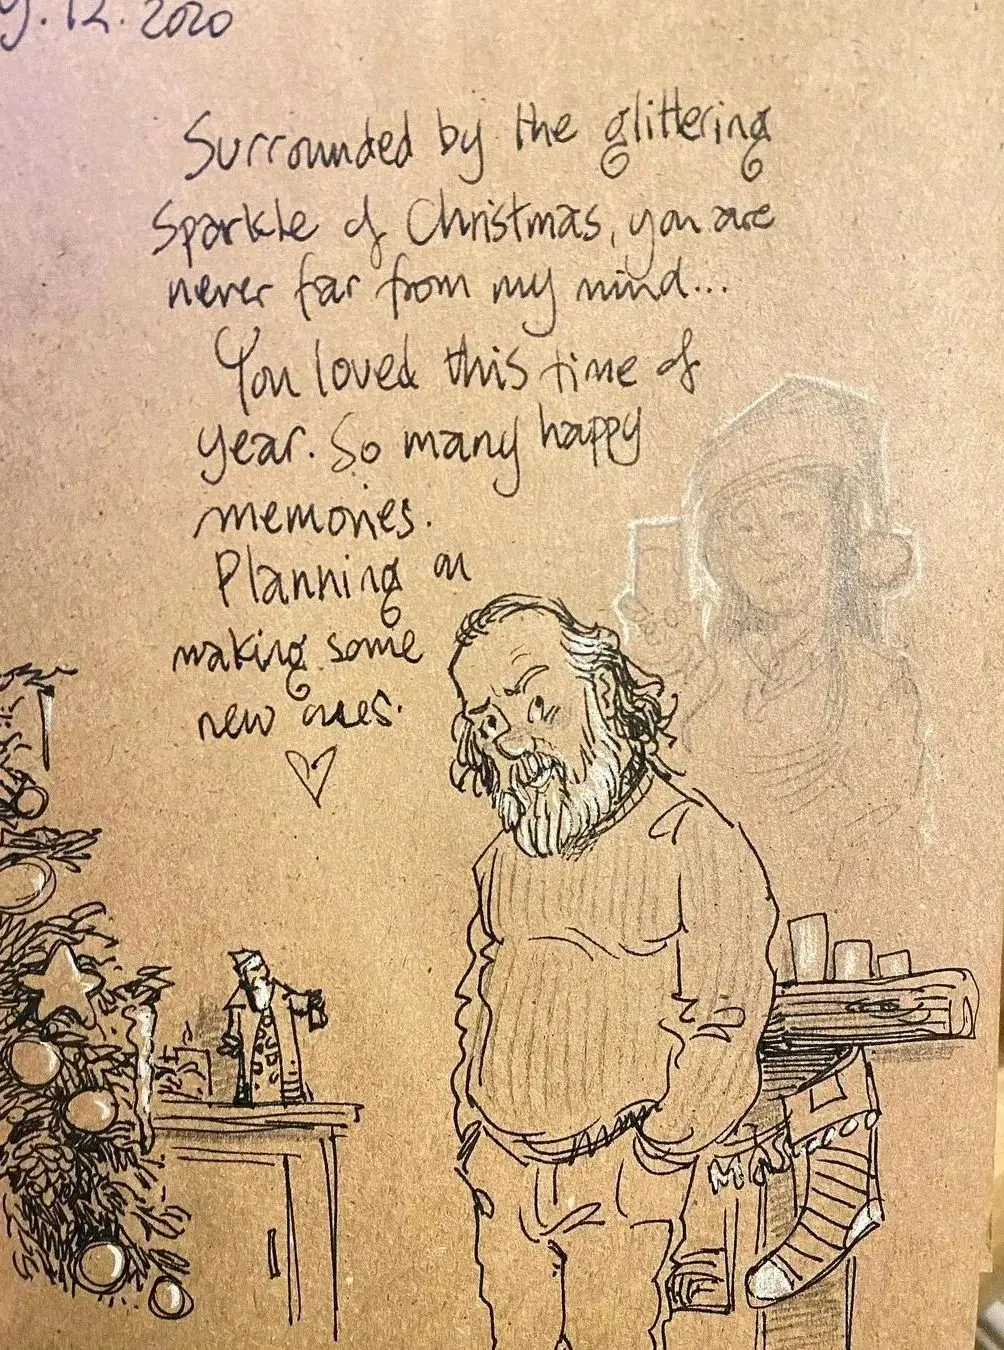 9.12.2020
Surrounded by the glittering
sparkle of Christmas, you are
never far from my mind...
You loved this time of
year. So many happy
memories.
Planning on
making some
new ones.